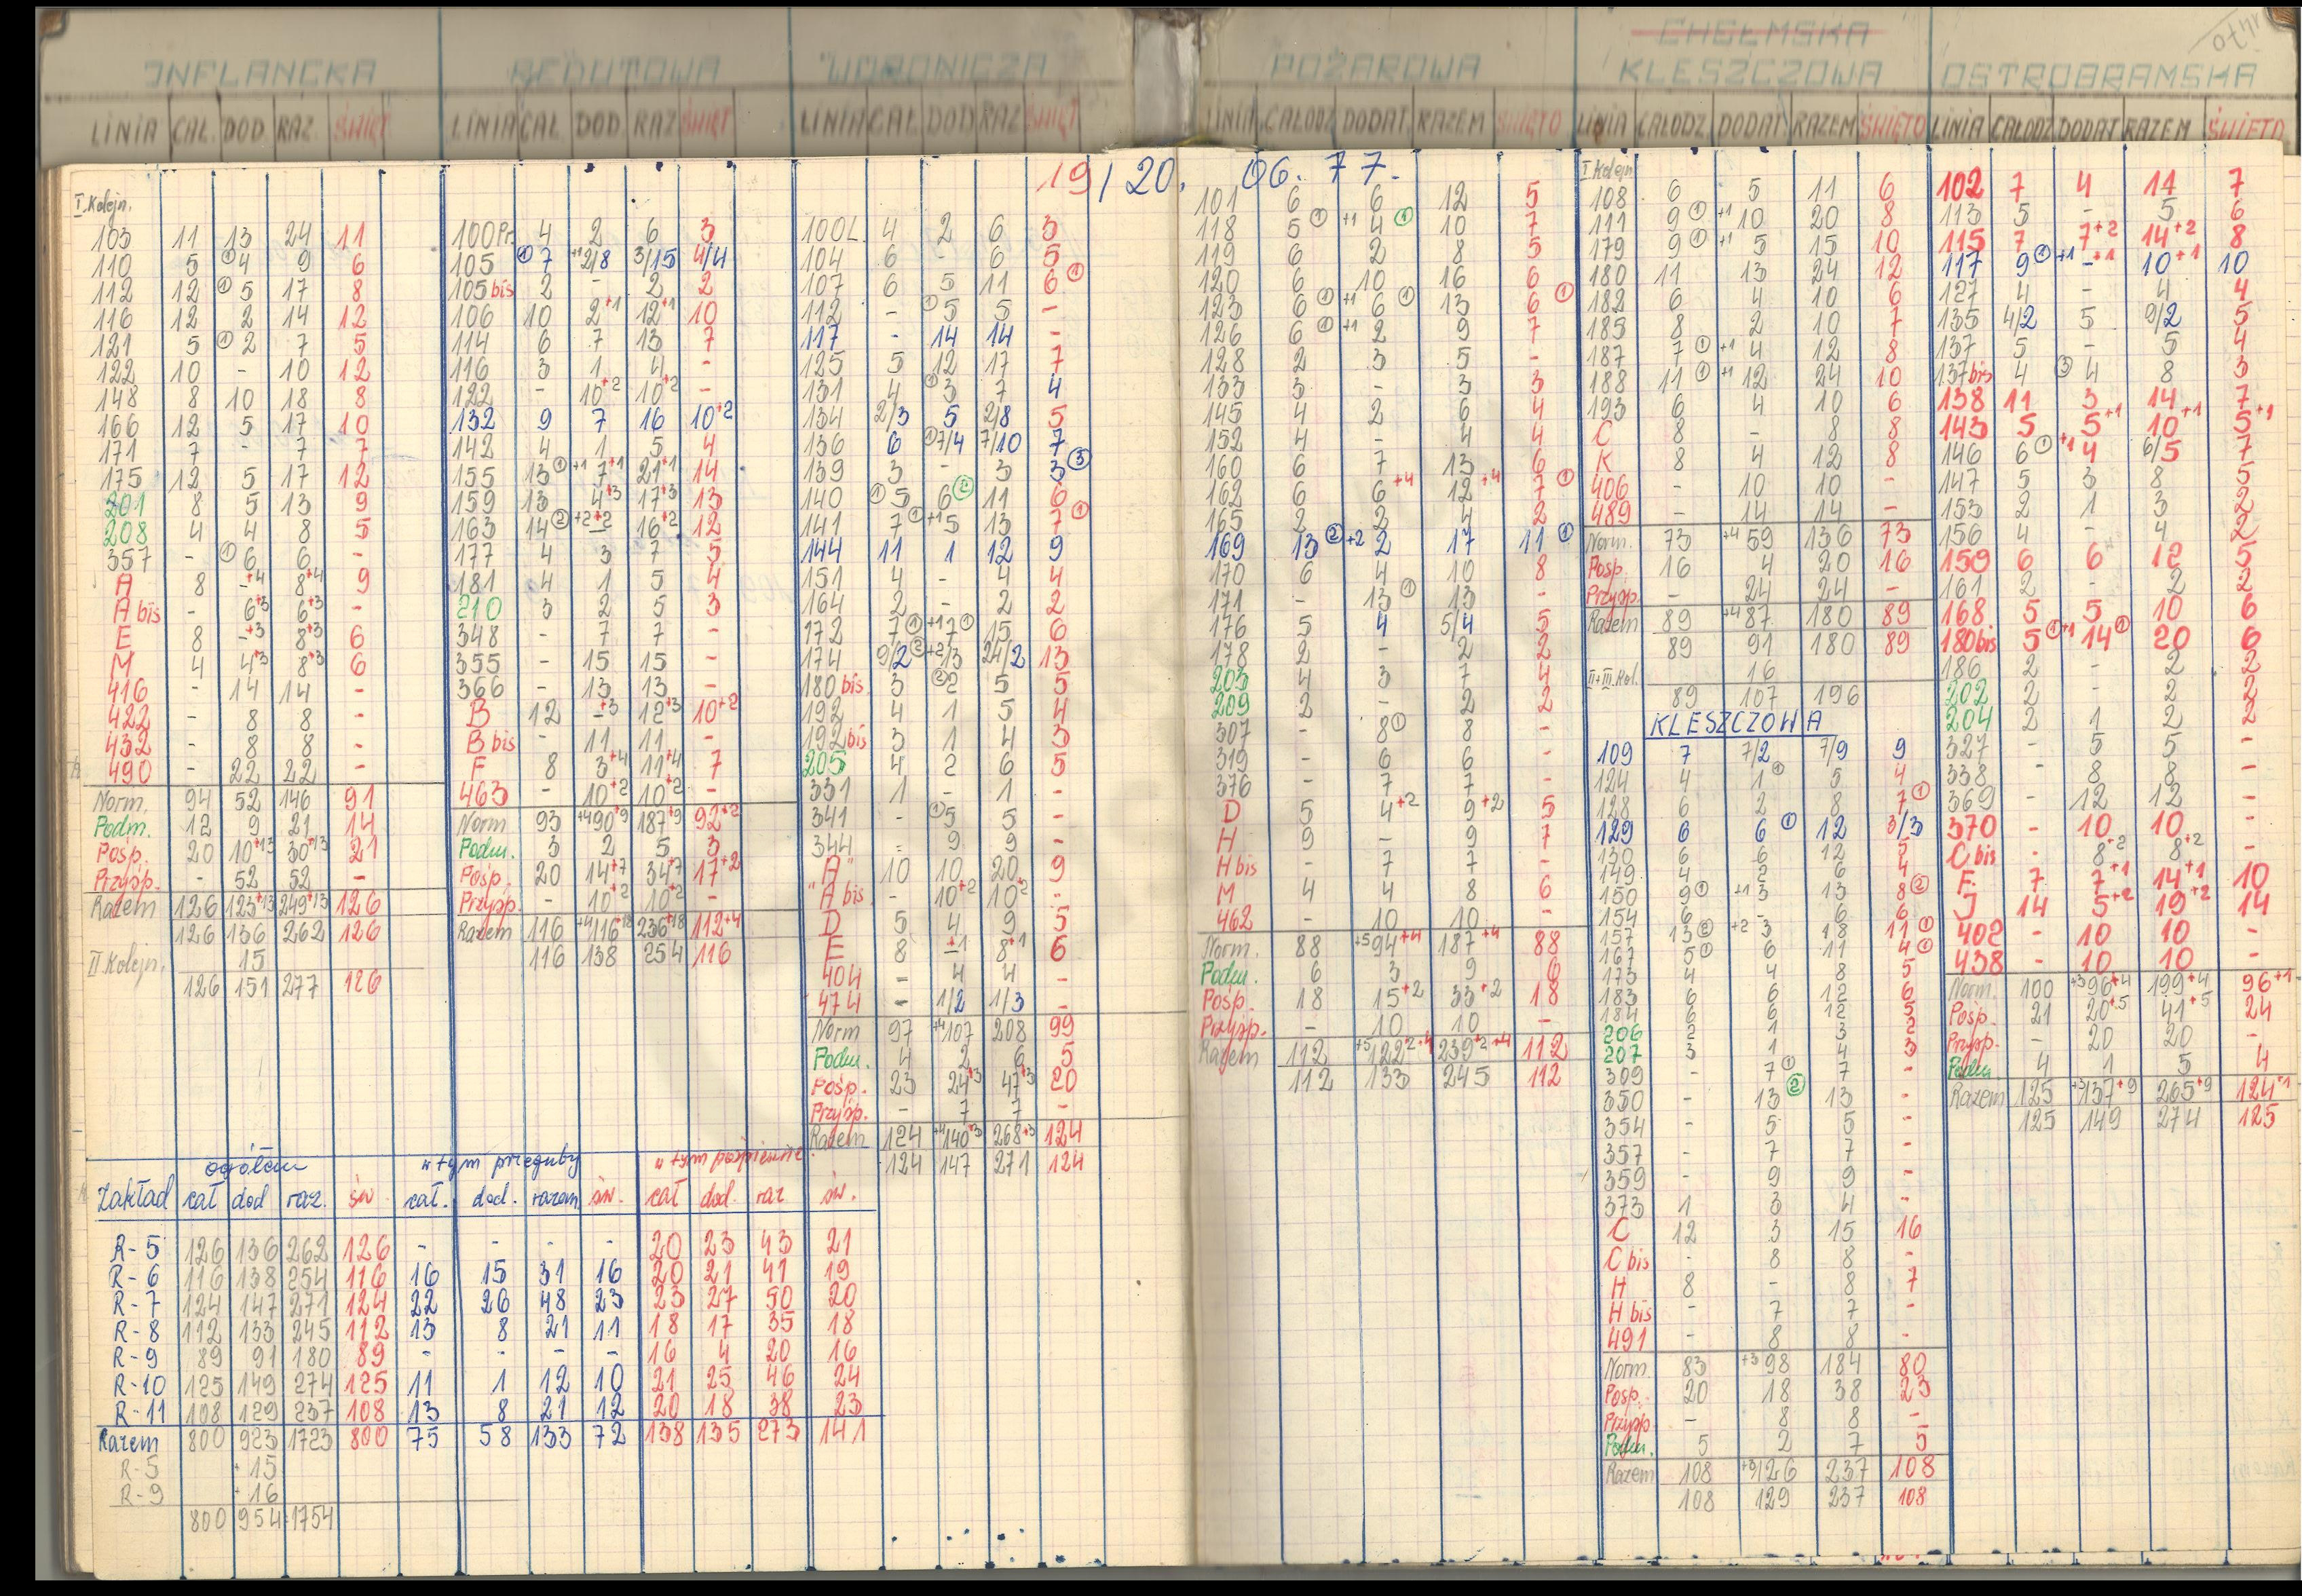 INFLANCKA
LINIA CAŁ. DOD. RAZ. ŚWIĘT
I.Kolejn.
103 11 13 24 11
110 5 ①4 9 6
112 12 ①5 17 8
116 12 2 14 12
121 5 ①2 7 5
122 10 - 10 12
148 8 10 18 8
166 12 5 17 10
171 7 - 7 7
175 12 5 17 12
201 8 5 13 9
208 4 4 8 5
357 - ①6 6 -
A 8 -+4 8+4 9
A bis - 6+3 6+3 -
E 8 -+3 8+3 6
M 4 4+3 8+3 6
416 - 14 14 -
422 - 8 8 -
432 - 8 8 -
490 - 22 22 -
Norm. 94 52 146 91
Podm. 12 9 21 14
Pośp. 20 10+13 30+13 21
Przysp. - 52 52 -
Razem 126 123+13 249+13 126
126 136 262 126
II Kolejn. 15
126 151 277 126
REDUTOWA
LINIA CAŁ DOD RAZ ŚWIĘT
100Pr. 4 2 6 3
105 ①7 +1 2/8 3/15 4/4
105 bis 2 - 2 2
106 10 2+1 12+1 10
114 6 7 13 7
116 3 1 4 -
122 - 10+2 10+2 -
132 9 7 16 10+2
142 4 1 5 4
155 13① +1 7+1 21+1 14
159 13 4+3 17+3 13
163 14② +2 -+2 16+2 12
177 4 3 7 5
181 4 1 5 4
210 3 2 5 3
348 - 7 7 -
355 - 15 15 -
366 - 13 13 -
B 12 -+3 12+3 10+2
B bis - 11 11 -
F 8 3+4 11+4 7
463 - 10+2 10+2 -
Norm 93 +4 90+9 187+9 92+2
Podm. 3 2 5 3
Pośp. 20 14+7 34+7 17+2
Przysp. - 10+2 10+2 -
Razem 116 +4 116+18 236+18 112+4
116 138 254 116
WORONICZA
LINIA CAŁ DOD RAZ ŚWIĘT
19/20. 06. 77.
100L 4 2 6 3
104 6 - 6 5
107 6 5 11 6①
112 - ①5 5 -
117 - 14 14 -
125 5 12 17 7
131 4 ①3 7 4
134 2/3 5 2/8 5
136 6 ①7/4 7/10 7
139 3 - 3 3③
140 ①5 6② 11 6
141 7① +1 5 13 7①
144 11 1 12 9
151 4 - 4 4
164 2 - 2 2
172 7① +1 7① 15 6
174 9/2② +2 13 24/2 13
180 bis 3 ②2 5 5
192 4 1 5 4
192bis 3 1 4 3
205 4 2 6 5
331 1 - 1 -
341 - ①5 5 -
344 = 9 9 -
"A" 10 10 20 9
"A bis - 10+2 10+2 -
D 5 4 9 5
E 8 -+1 8+1 6
404 - 4 4 -
474 - 1/2 1/3 -
Norm 97 +4 107 208 99
Podm. 4 2 6 5
Pośp. 23 24+3 47+3 20
Przysp. - 7 7 -
Razem 124 +4 140+3 268+3 124
124 147 271 124
ogółem w tym przeguby w tym pośpieszne
Zakład cał dod raz. św cał. dod. razem św. cał dod. raz św.
R-5 126 136 262 126 - - - - 20 23 43 21
R-6 116 138 254 116 16 15 31 16 20 21 41 19
R-7 124 147 271 124 22 26 48 23 23 27 50 20
R-8 112 133 245 112 13 8 21 11 18 17 35 18
R-9 89 91 180 89 - - - - 16 4 20 16
R-10 125 149 274 125 11 1 12 10 21 25 46 24
R-11 108 129 237 108 13 8 21 12 20 18 38 23
Razem 800 923 1723 800 75 58 133 72 138 135 273 141
R-5 +15
R-9 +16
800 954 1754
POŻAROWA
LINIA CAŁODZ DODAT RAZEM ŚWIĘTO
101 6 6 12 5
118 5① +1 4① 10 7
119 6 2 8 5
120 6 10 16 6
123 6① +1 6① 13 6①
126 6① +1 2 9 7
128 2 3 5 -
133 3 - 3 3
145 4 2 6 4
152 4 - 4 4
160 6 7 13 6
162 6 6+4 12+4 7①
165 2 2 4 2
169 13② +2 2 17 11①
170 6 4 10 8
171 - 13① 13 -
176 5 4 5/4 5
178 2 - 2 2
203 4 3 7 4
209 2 - 2 2
307 - 8① 8 -
319 - 6 6 -
376 - 7 7 -
D 5 4+2 9+2 5
H 9 - 9 7
H bis - 7 7 -
M 4 4 8 6
462 - 10 10 -
Norm. 88 +5 94+4 187+4 88
Podm. 6 3 9 6
Pośp. 18 15+2 33+2 18
Przysp. - 10 10 -
Razem 112 +5 122+2+4 239+2+4 112
112 133 245 112
CHEŁMSKA
KLESZCZOWA
LINIA CAŁODZ. DODAT. RAZEM ŚWIĘTO
I.Kolejn
108 6 5 11 6
111 9① +1 10 20 8
179 9① +1 5 15 10
180 11 13 24 12
182 6 4 10 6
185 8 2 10 7
187 7① +1 4 12 8
188 11① +1 12 24 10
193 6 4 10 6
C 8 - 8 8
K 8 4 12 8
406 - 10 10 -
489 - 14 14 -
Norm. 73 +4 59 136 73
Pośp. 16 4 20 16
Przysp. - 24 24 -
Razem 89 +4 87 180 89
89 91 180 89
II+III.Kol. 16
89 107 196
KLESZCZOWA
109 7 7/2 7/9 9
124 4 1① 5 4
128 6 2 8 7①
129 6 6① 12 3/3
130 6 6 12 5
149 4 2 6 4
150 9① +1 3 13 8②
154 6 - 6 6
157 13② +2 3 18 11①
167 5① 6 11 4①
173 4 4 8 5
183 6 6 12 6
184 6 6 12 5
206 2 1 3 2
207 3 1 4 3
309 - 7① 7 -
350 - 13② 13 -
354 - 5 5 -
357 - 7 7 -
359 - 9 9 -
373 1 3 4 -
C 12 3 15 16
C bis - 8 8 -
H 8 - 8 7
H bis - 7 7 -
491 - 8 8 -
Norm. 83 +3 98 184 80
Pośp. 20 18 38 23
Przysp. - 8 8 -
Podm. 5 2 7 5
Razem 108 +3 126 237 108
108 129 237 108
OSTROBRAMSKA
LINIA CAŁODZ DODAT RAZEM ŚWIĘTO
102 7 4 11 7
113 5 - 5 6
115 7 7+2 14+2 8
117 9① +1 -+1 10+1 10
127 4 - 4 4
135 4/2 5 9/2 5
137 5 - 5 4
137bis 4 ③4 8 3
138 11 3 14 7
143 5 5+1 10+1 5+1
146 6① +1 4 6/5 7
147 5 3 8 5
153 2 1 3 2
156 4 - 4 2
159 6 6 12 5
161 2 - 2 2
168 5 5 10 6
180bis 5① +1 14① 20 6
186 2 - 2 2
202 2 - 2 2
204 2 1 2 2
327 - 5 5 -
338 - 8 8 -
369 - 12 12 -
370 - 10 10 -
C bis - 8+2 8+2 -
F 7 7+1 14+1 10
J 14 5+2 19+2 14
402 - 10 10 -
438 - 10 10 -
Norm. 100 +3 96+4 199+4 96+1
Pośp. 21 20+5 41+5 24
Przysp. - 20 20 -
Podm 4 1 5 4
Razem 125 +3 137+9 265+9 124+1
125 149 274 125